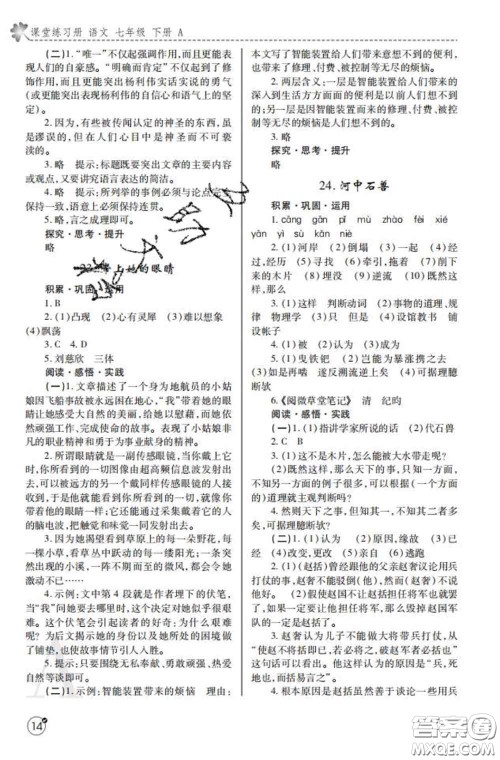 课堂练习册 语文 七年级 下册 A
(二)1.“唯一”不仅起强调作用,而且更能表
现人们的自豪感。“明确而肯定”不仅起到了修
饰作用,而且更能突出杨利伟实话实说的勇气
(或更能突出表现杨利伟的自信心和语气上的坚
定)。
2.因为,有些被传闻认定的神圣的东西,虽
是谬误的,但在人们心目中是神圣而不可亵
渎的。
3.略 提示:标题既要突出文章的主要内容
或观点,又要讲究语言表达的简洁。
4.略 提示:所列举的事例必须与论点
保持一致,语意上必须保持连贯。
5.略,言之成理即可。
探究·思考·提升
略
上她的眼睛
积累·巩固·运用
1.B
2.(1)凸现 (2)心有灵犀 (3)难以想象
(4)飘荡
3.C 4.D
5.刘慈欣 三体
阅读·感悟·实践
(一)1.文章描述了一个身为地航员的小姑
娘因飞船事故被永远困在地心,“我”带着她的眼
睛让她感受大自然的美丽,给她以慰藉,而她依
然顽强工作、完成使命的故事。表现了小姑娘非
凡的人生精神和勇于为事业献身的精神。
2.所谓眼睛就是一副传感眼镜,当你戴上它
时,你所看到的一切图像由超高频信息波发射出
去,可以被远方的另一个戴同样传感眼镜的人接
收到,于是他就能看到你所看到的一切,就像你
带着他的眼睛;它还能通过采集戴着它的人的脑
电波,把触觉和味觉一同发射出去。
3.因为她渴望看到草原上的每一朵野花,每
一棵小草,看草丛中跃动的每一缕阳光;一条突
然出现的小溪,一阵不期而至的微风,都会令她
激动不已……
4.示例:文中第4段就是作者埋下的伏笔,
当“我”问她要去哪里时,这个决定对她似乎很艰
难。这个伏笔会引起读者的好奇:为什么艰难?
为后文揭示她的身份以及她所处的困境做了铺
垫,也使故事情节引人入胜。
5.提示:只要围绕无私奉献、勇敢顽强、热爱
自然等谈即可。
(二)1.示例:智能装置带来的烦恼 理由:
本文写了智能装置给人们带来意想不到的便利,
也带来了修理、付费、被控制等无尽的烦恼。
2.两层含义:一层是因智能装置的带来的
深入到生活方方面面的便利是以前人们想不到
的;另一层是因智能装置而来的修理、付费、被控
制等无尽的烦恼是人们想不到的。
3.略
探究·思考·提升
略
24.河中石兽
积累·巩固·运用
1.cāng gān pǐ mù zhào fèi xié
yān yì sù kǎn
2.(1)河岸 (2)倒塌 (3)一起 (4)经过
(5)寻找 (6)寻找 (7)牵引,拖着 (7)削下
来的木片 (8)埋没 (9)逆流 (10)既然这样,
那么
3.(1)这样 判断动词 (2)事物的道理,规
律 物理学 (3)像 如果 (4)设馆教书 铺
设帐子
4.(1)被 (2)认为 (3)成为
5.(1)曳铁钯 (2)岂能为暴涨携之去
(3)如是再啮 遂反溯流逆上矣 (4)可据理臆
断欤
6.《阅微草堂笔记》 清 纪昀
阅读·感悟·实践
(一)1.(1)指讲学家所说的话 (2)代石兽
2.C B
3.(1)这不是木片,怎么能被大水带走呢?
(2)既然这样,那么天下的事,只知一方面,
不知另一方面的多得很,可以(根据一个方面的)
道理就主观判断吗?
4.然则天下之事,但知其一,不知其二者多
矣,可据理臆断欤?
(二)1.(1)认为 (2)原因,缘故 (3)已
经 (4)改变
2.(1)(赵括)曾经跟他的父亲赵奢谈论用兵
打仗的事,赵奢不能驳倒(他),然而(赵奢)不说
他好。 (2)假使赵国不让赵括担任将军也就罢
了,如果一定要让赵括担任将军,那么毁掉赵国
军队的一定是赵括了。
3.赵奢认为儿子不能做大将带兵打仗,从
“使赵不将括即已,若必将之,破赵军者必括也”
这句话可以看出。他这认为的原因是“兵,死地
也,而括易言之”。
4.根本原因是赵括虽然善于谈论一些用兵
14
答案圈
MXQE.COM